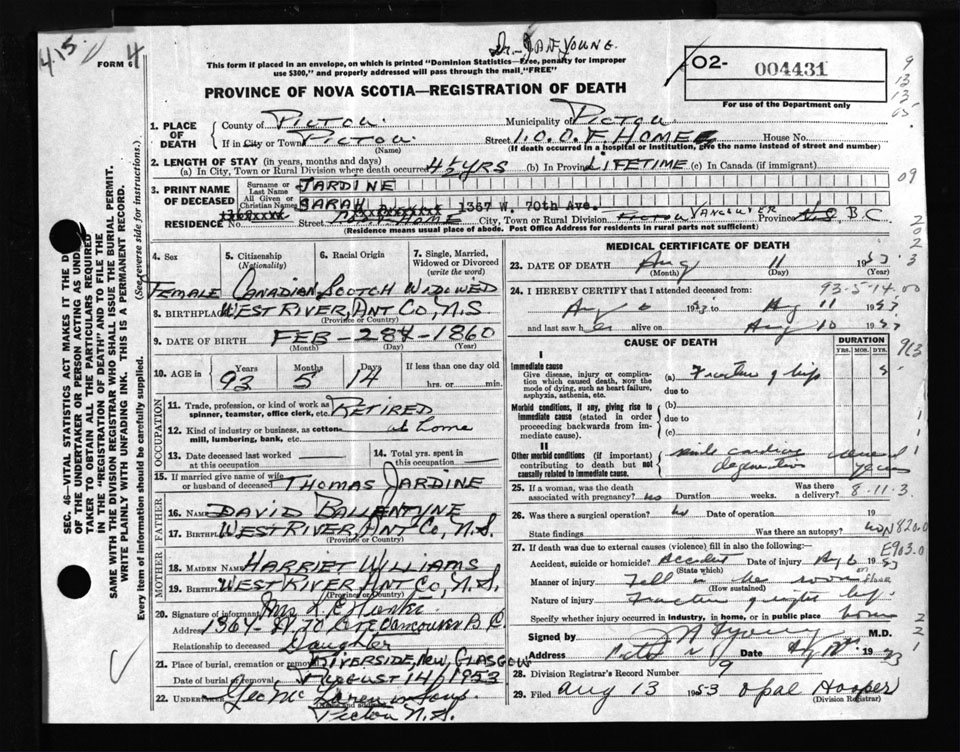 4.15.
FORM 4
Dr. JAF YOUNG.
This form if placed in an envelope, on which is printed "Dominion Statistics—Free, penalty for improper
use $300," and properly addressed will pass through the mail "FREE"
PROVINCE OF NOVA SCOTIA—REGISTRATION OF DEATH
02- 004431
For use of the Department only
1. PLACE OF DEATH
County of PICTOU. Municipality of PICTOU
If in City or Town PICTOU. Street I.O.O.F. HOME House No.
(Name) (If death occurred in a hospital or institution, give the name instead of street and number)
2. LENGTH OF STAY (in years, months and days)
(a) In City, Town or Rural Division where death occurred 4½ YRS (b) In Province LIFETIME (c) In Canada (if immigrant)
3. PRINT NAME OF DECEASED
Surname or Last Name JARDINE
All Given or Christian Names SARAH 1367 W. 70th Ave.
RESIDENCE No. Street HOME City, Town or Rural Division PICTOU VANCOUVER Province N.S. B C
(Residence means usual place of abode. Post Office Address for residents in rural parts not sufficient)
4. Sex 5. Citizenship (Nationality) 6. Racial Origin 7. Single, Married, Widowed or Divorced (write the word)
FEMALE CANADIAN SCOTCH WIDOWED
8. BIRTHPLACE WEST RIVER, ANT CO, N.S
(Province or Country)
9. DATE OF BIRTH FEB - 28 - 1860
(Month) (Day) (Year)
10. AGE in Years Months Days If less than one day old
93 5 14 hrs. or min.
OCCUPATION
11. Trade, profession, or kind of work as spinner, teamster, office clerk, etc. RETIRED
12. Kind of industry or business, as cotton mill, lumbering, bank, etc. at home
13. Date deceased last worked at this occupation
14. Total yrs. spent in this occupation
15. If married give name of wife or husband of deceased THOMAS JARDINE
FATHER
16. Name DAVID BALLENTYNE
17. Birthplace WEST RIVER, ANT CO, N.S.
(Province or Country)
MOTHER
18. MAIDEN NAME HARRIET WILLIAMS
19. Birthplace WEST RIVER, ANT CO, N.S.
(Province or Country)
20. Signature of informant Mrs.
Address 1367- W. 70 Ave Vancouver B.C.
Relationship to deceased Daughter
21. Place of burial, cremation or removal RIVERSIDE, NEW GLASGOW
Date of burial or removal AUGUST 14, 1953
22. UNDERTAKER Geo Mc Laren
(Name and address)
Pictou N.S.
MEDICAL CERTIFICATE OF DEATH
23. DATE OF DEATH Aug 11 1953
(Month) (Day) (Year)
93-5-14.00
24. I HEREBY CERTIFY that I attended deceased from:
Aug 6 1953 to Aug 11 1953
and last saw her alive on Aug 10 1953
CAUSE OF DEATH DURATION
YRS. MOS. DYS.
I
Immediate cause
Give disease, injury or complication which caused death, NOT the mode of dying, such as heart failure, asphyxia, asthenia, etc.
(a) Fracture of hip 5
due to
Morbid conditions, if any, giving rise to immediate cause (stated in order proceeding backwards from immediate cause).
(b)
due to
(c)
II
Other morbid conditions (if important) contributing to death but not causally related to immediate cause.
senile cardiac degeneration several years
25. If a woman, was the death associated with pregnancy? no Duration weeks. Was there a delivery?
8-11-3
26. Was there a surgical operation? no Date of operation 19
State findings Was there an autopsy? no
N820.0
27. If death was due to external causes (violence) fill in also the following:—
E903.0
Accident, suicide or homicide? Accident Date of injury Aug 6 1953
(State which)
Manner of injury Fell in the room on floor
(How sustained)
Nature of injury Fracture of right hip
Specify whether injury occurred in industry, in home, or in public place home
Signed by M.D.
Address Date 19
28. Division Registrar's Record Number 9
29. Filed Aug 13 1953 Opal Hooper
(Division Registrar)
SEC. 46—VITAL STATISTICS ACT MAKES IT THE DUTY
OF THE UNDERTAKER OR PERSON ACTING AS UNDER-
TAKER TO OBTAIN ALL THE PARTICULARS REQUIRED
IN THE "REGISTRATION OF DEATH" AND TO FILE THE
SAME WITH THE DIVISION REGISTRAR WHO SHALL ISSUE THE BURIAL PERMIT.
WRITE PLAINLY WITH UNFADING INK. THIS IS A PERMANENT RECORD.
Every item of information should be carefully supplied. (See reverse side for instructions.)